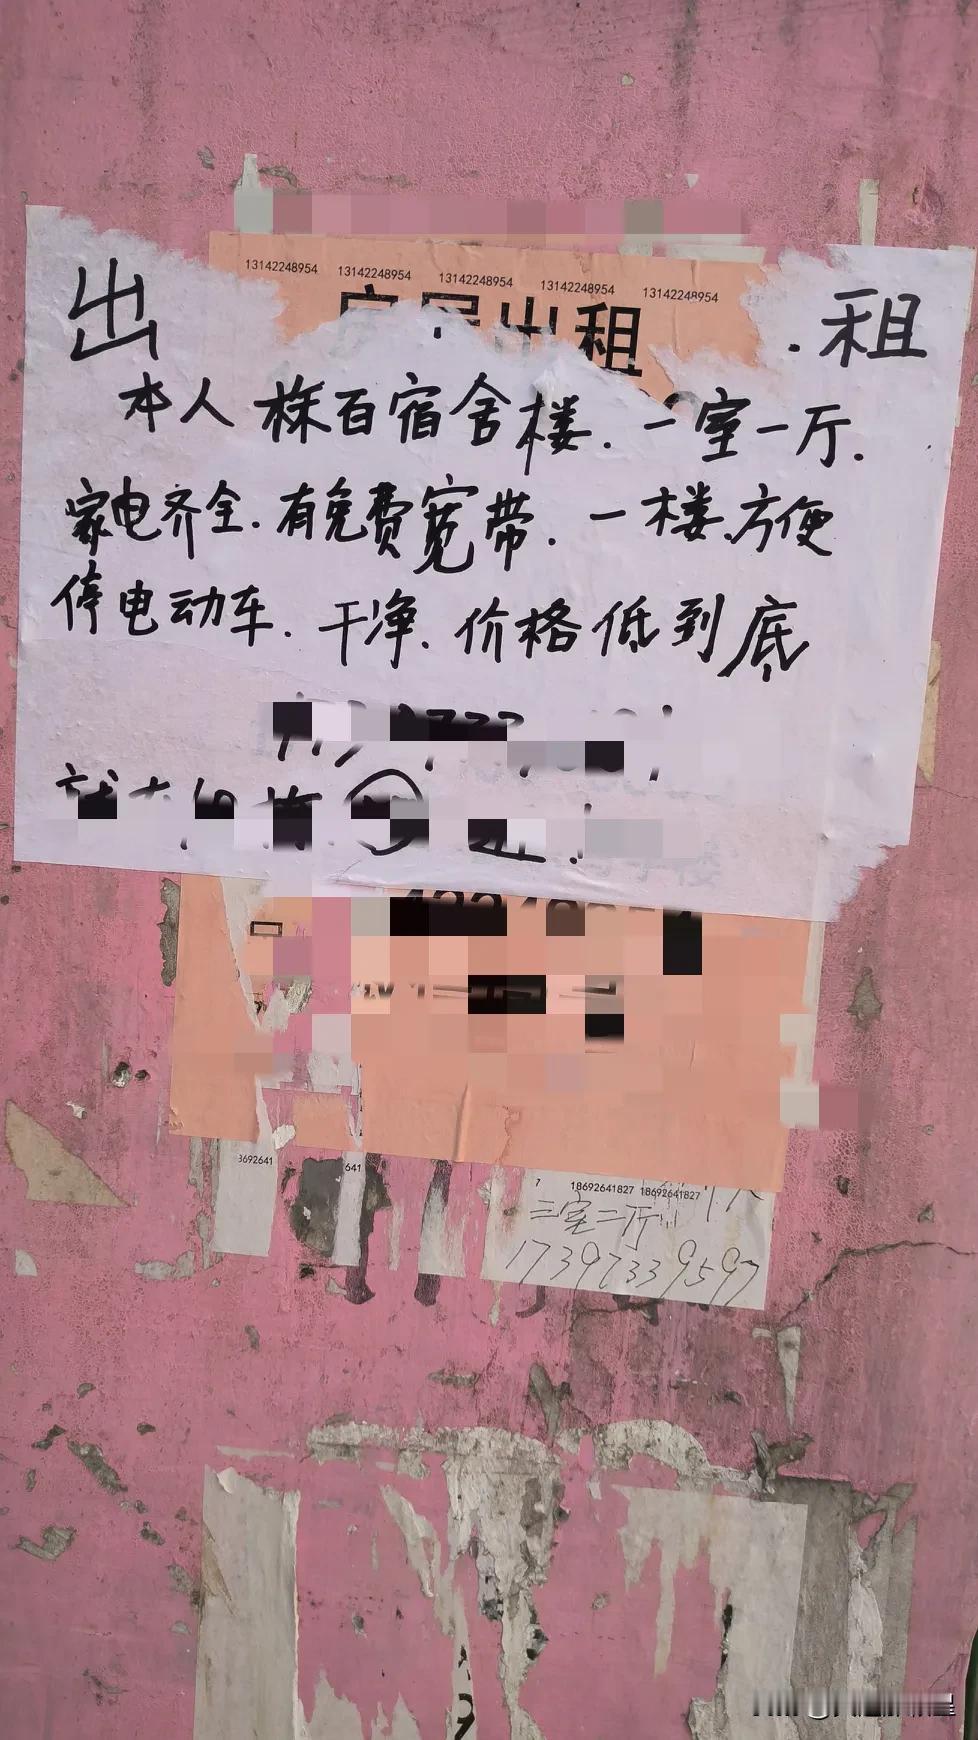 13142248954 13142248954 13142248954 13142248954 13142248954
出租
出 租
本人株百宿舍楼.一室一厅.
家电齐全.有免费宽带.一楼.方便
停电动车.干净.价格低到底
3692641
641
7 18692641827 18692641827
三室二厅
17397339597